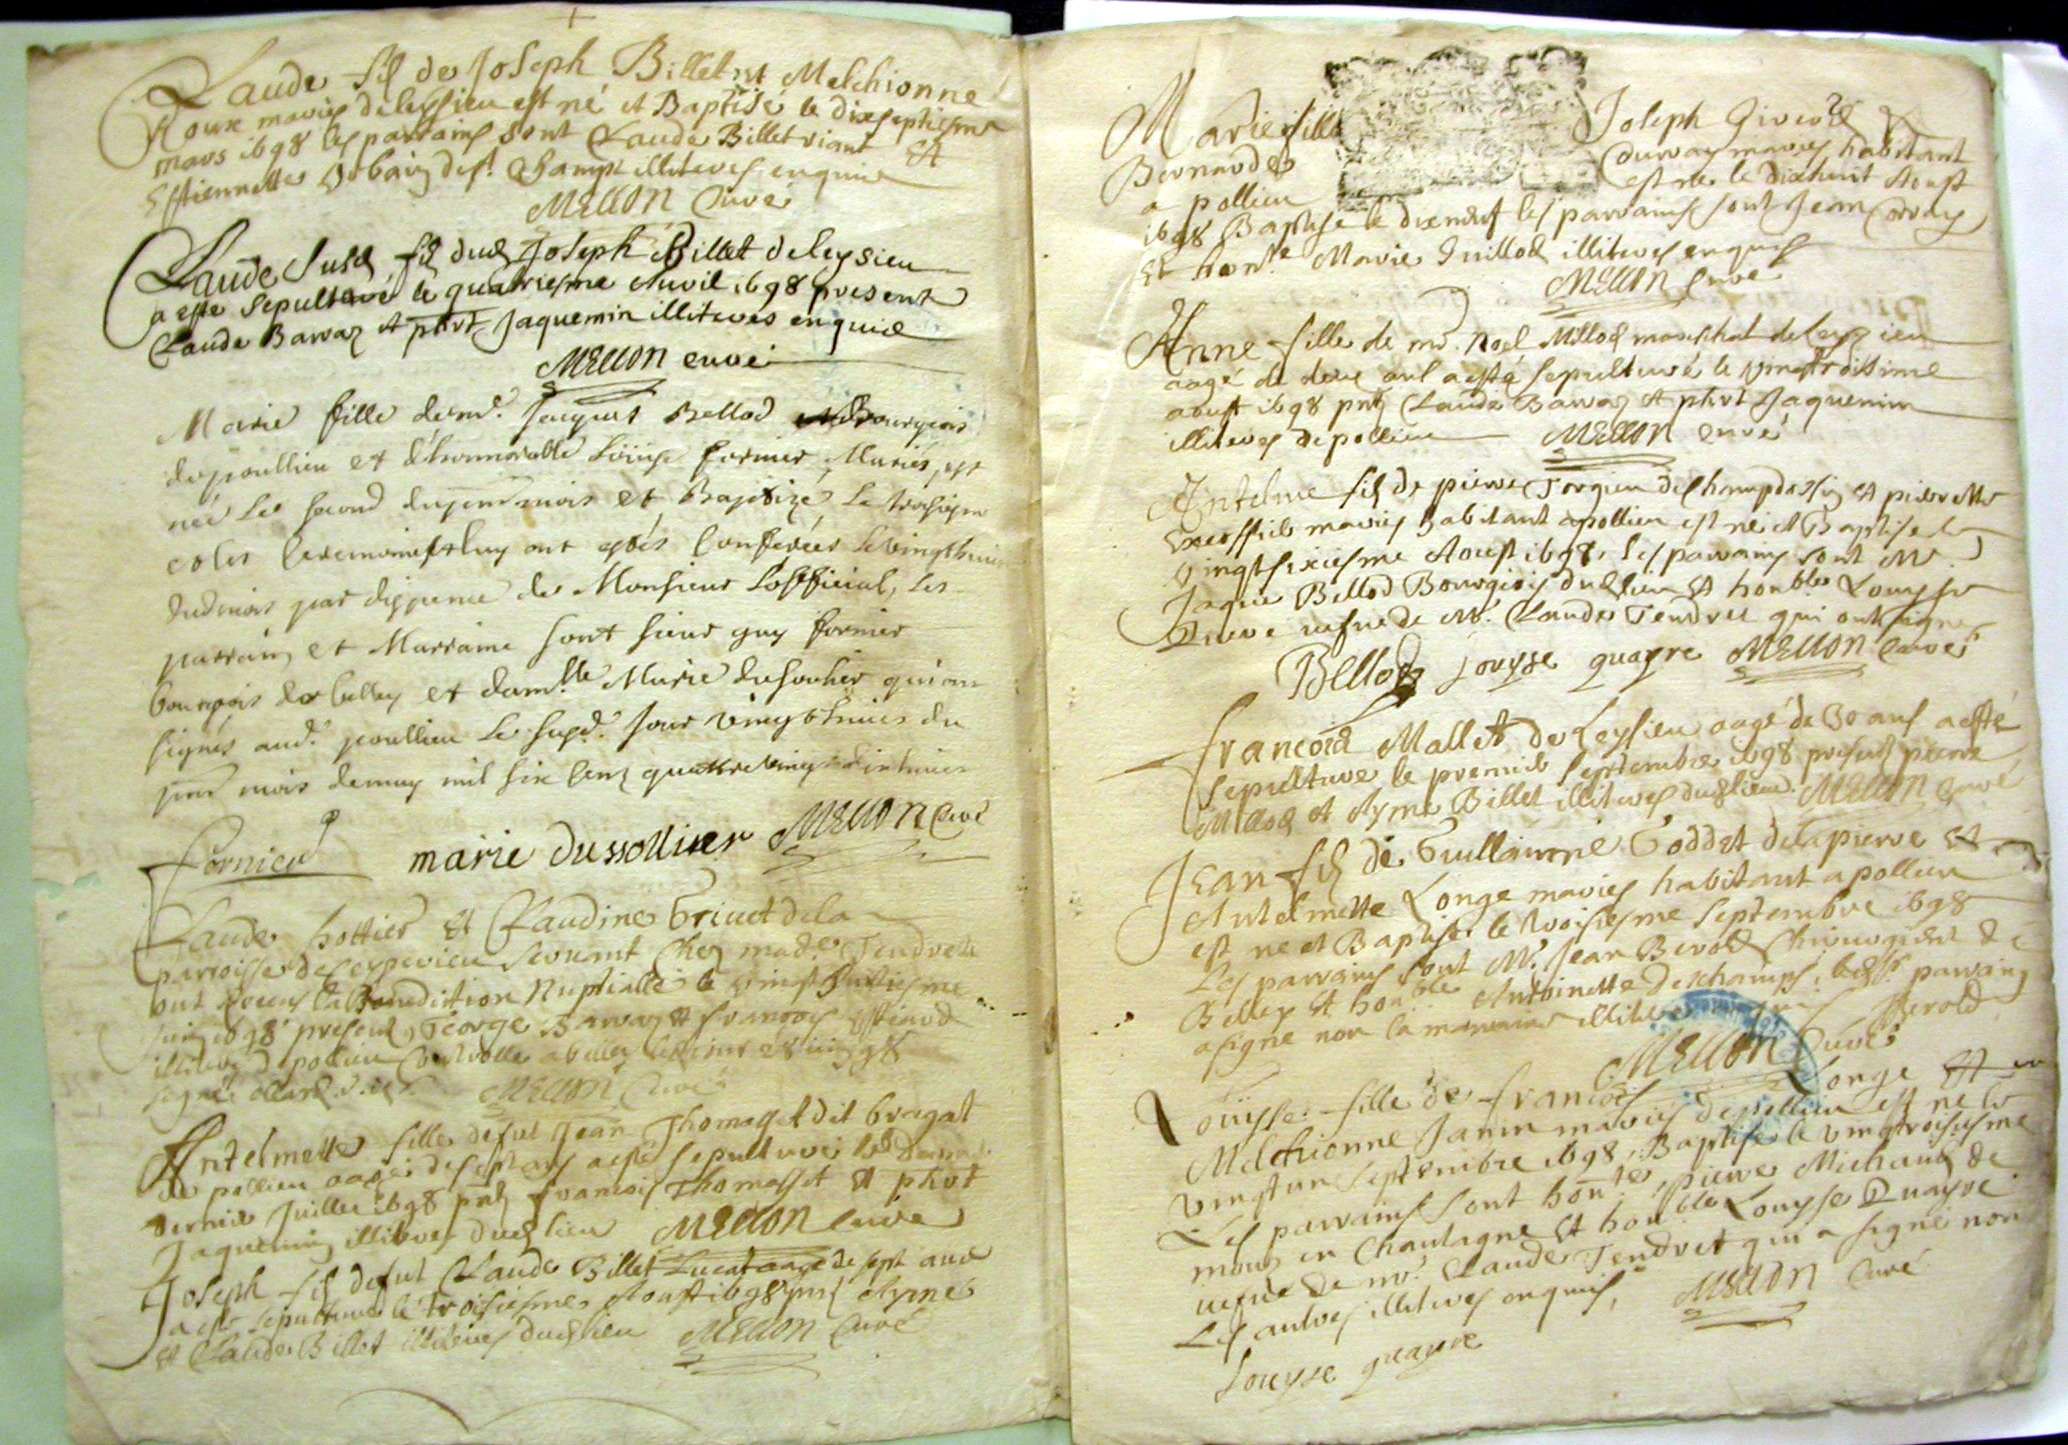 Claude fils de Joseph Billet et Melchionne
Roux mariés de leysieu est né et Baptisé le dixseptiesme
mars 1698 les parrains sont Claude Billet viant et
Estiennette illiteres enquis
MELLON Curé
Claude susd fils dud Joseph Billet de leysieu
a esté sepulturé le quatriesme Avril 1698 present
Claude Barraz et phrt Jaquemin illiteres enquis
MELLON curé
Marie fille de mr. Jacques Bellod Bourgeois
de poullieu et d'honnorable Louise fornier Mariés, est
née le second du pnt mois et Baptizé le troisiesme
et les Ceremonies luy ont estés Conferées le vingthuit
dudmois par dispence de Monsieur Lofficial, les
parrain et Marraine sont sieur guy fornier
bourgeois de belley et dam.lle Marie du soulier qui ont
signés aud. poullieu le susd. Jour vingthuit du
pnt mois de may mil six cent quattrevingt dixhuict
fornier marie dussollier MELLON Curé
Claude hottier et Claudine Grivet de la
parroisse de ceyzerieu servant Chez mad.e Tendret
ont receus la Benediction Nuptialle le vingt
juin 1698 presents George Barraz et francois
illiteres de pollieu Controlle a belley
signé
MELLON Curé
Antelmette fille de fut Jean Thomasset dit bragat
de pollieu aagée de sept ans a esté sepulturée le
dernier Juillet 1698 pnts francois Thomasset et phrt
Jaquemin illiteres dud lieu MELLON Curé
Joseph fils de fut Claude Billet Lucat aagé de sept ans
a esté sepulturé le troisiesme Aoust 1698 pnts Aymé
et Claude Billet illiteres dud lieu MELLON Curé
Marie fille Joseph Givord
Bernarde Curray mariés habitant
a pollieu est née le dixhuit Aoust
1698 Baptisé le dixneuf les parrains sont Jean
et hon.te Marie Guillod illiteres enquis
MELLON Curé
Anne fille de mr. Noel Millod mareschal de leyzieu
aagé de deux ans a esté sepulturé le vingtroisiime
aoust 1698 pnts Claude Barraz et phrt Jaquemin
illiteres de pollieu MELLON curé
Antelme fils de pierre et pierrette
mariés habitant a pollieu est né et Baptisé le
vingtsixiesme Aoust 1698, les parrains sont Mr.
Jaque Bellod Bourgeois dud lieu et honble Louyse
Quere vefue de Mr. Claude Tendret qui ont signé
Bellod Louyse quayre MELLON Curé
francois Mallet de Leysieu aagé de 30 ans a esté
sepulture le premier septembre 1698 presents pierre
Millod et Aymé Billet illiteres dud lieu. MELLON Curé
Jean fils de Guillaume Goddet de la pierre et
Antelmette Longe mariés habitant a pollieu
est né et Baptisé le troisiesme septembre 1698
Les parrains sont Mr. Jean Berold Chirurgien de
Belley et honble Antoinette Deschamps, led sr. parrain
a signé non la marraine illitere Berold
MELLON Curé
Loüysse fille de francois Longe et
Melchionne Janin mariés de pollieu est née le
vingtun septembre 1698, Baptisée le vingtroisiesme
Les parrains sont hon.te pierre Michaud de
mouz en Chautagne et honble Louysse Quayre
vefue de mr. Claude Tendret qui a signé non
Les autres illiteres enquis, MELLON Curé
Louysse quayre